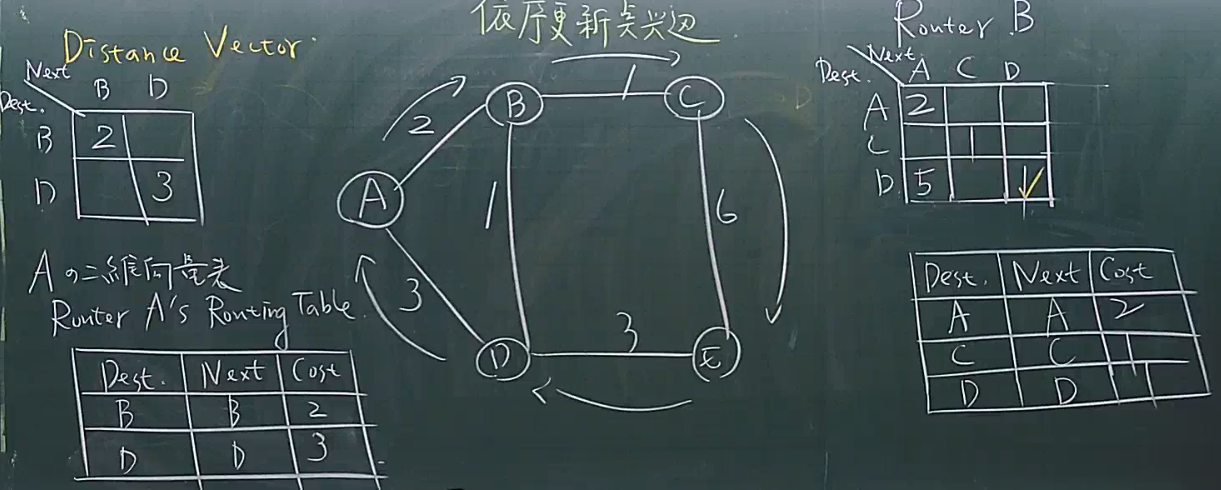 依序更新点与边.
Distance Vector.
Next
Dest.
B D
B 2
D 3
Aの二維向量表
Router A's Routing Table.
Dest. Next Cost
B B 2
D D 3
A
B
C
D
E
2
1
1
6
3
3
Router B
Next
Dest.
A C D
A 2
C 1
D 5 1 ✓
Dest. Next Cost
A A 2
C C 1
D D 1